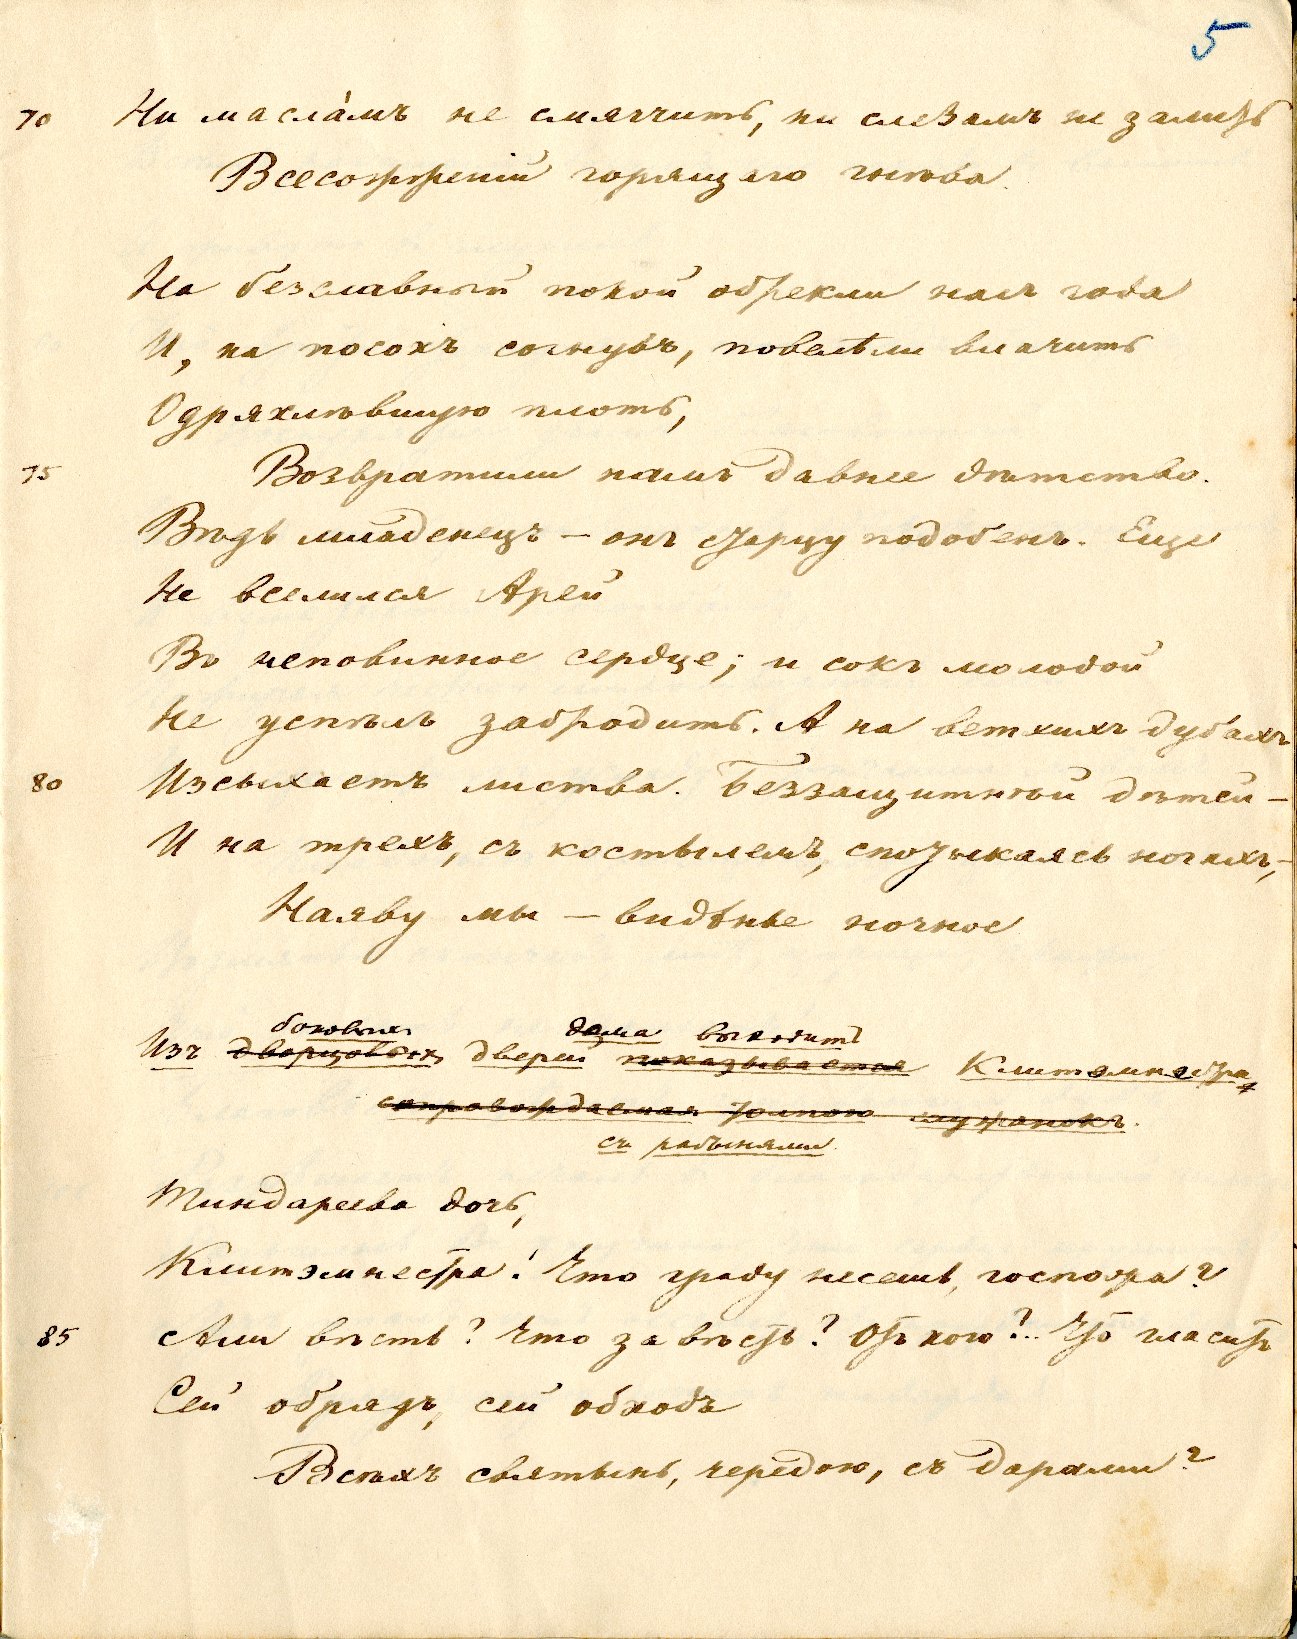 5
70 Ни масла́мъ не смягчить, ни слезамъ не залить
Всесожженій горящаго гнѣва.
На безславный покой обрекли насъ года
И, на посохъ согнувъ, повелѣли влачить
Одряхлѣвшую плоть,
75 Возвратили намъ давнее дѣтство.
Вѣдь младенецъ – онъ старцу подобенъ. Еще
Не вселился Арей
Въ неповинное сердце; и сокъ молодой
Не успѣлъ забродить. А на ветхихъ дубахъ
80 Изсыхаетъ листва. Беззащитнѣй дѣтей –
И на трехъ, съ костылемъ, спотыкаясь ногахъ, –
Наяву мы – видѣнье ночное
боковыхъ дома выходитъ
Изъ дворцовыхъ дверей показывается Клитэмнестра,
сопровождаемая толпою служанокъ.
съ рабынями
Тиндареева дочь,
Клитэмнестра! Что граду несешь, госпожа?
85 Али вѣсть? Что за вѣсть? Отъ кого?.. Что гласитъ
Сей обрядъ, сей обходъ
Всѣхъ святынь, чередою, съ дарами?